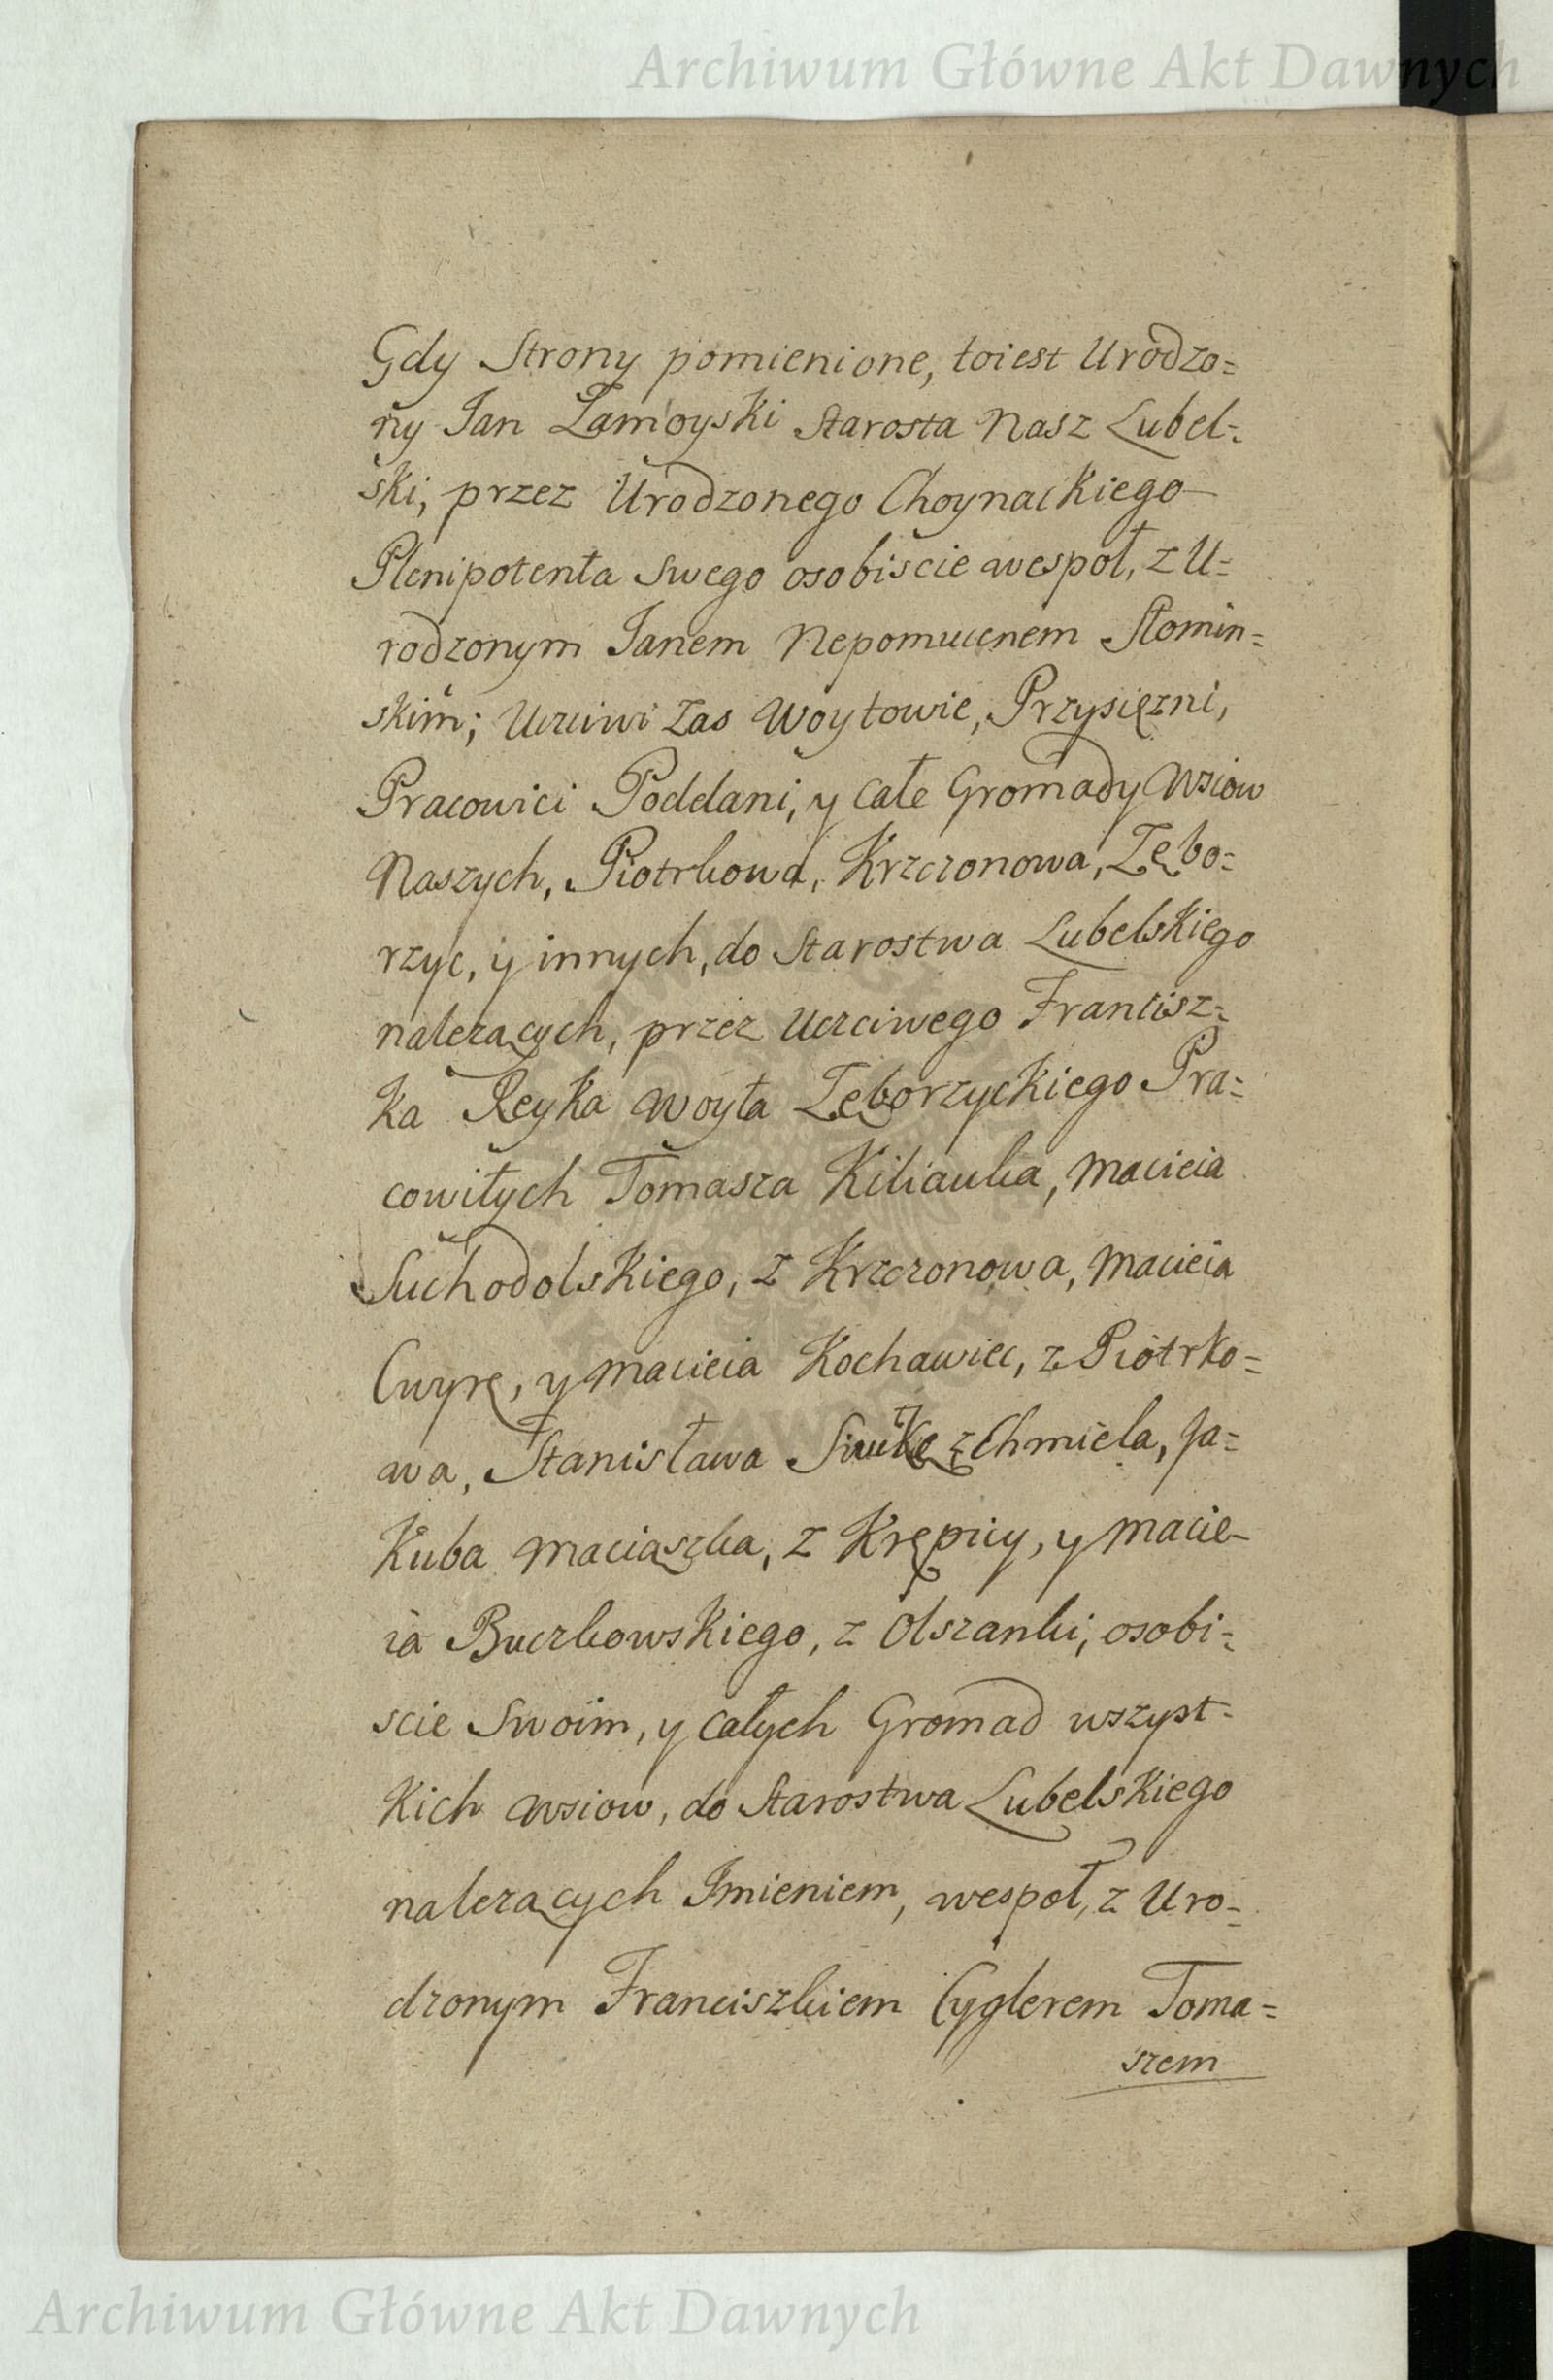 Archiwum Główne Akt Dawnych
Gdy Strony pomienione, toiest Urodzo=
ny Jan Zamoyski Starosta Nasz Lubel=
ski, przez Urodzonego Choynackiego
Plenipotenta swego osobiscie wespoł, z U=
rodzonym Janem Nepomucenem Słomin=
skim; Uczciwi Zas Woytowie, Przysięzni,
Pracowici Poddani, y całe Gromady Wsiow
Naszych, Piotrkowa, Krzczonowa, Zębo=
rzyc, y innych, do Starostwa Lubelskiego
nalezących, przez Uczciwego Francisz=
ka Reyka Woyta Zęborzyckiego Pra=
cowitych Tomasza Kilianka, Macieia
Suchodolskiego, z Krzczonowa, Macieia
Cwyrę, y Macieia Kochawiec, z Piotrko=
wa, Stanisława z Chmiela, Ja=
kuba Maciaszka, z Krępicy, y Macie=
ia Buczkowskiego, z Olszanki, osobi=
scie Swoim, y całych Gromad wszyst=
kich Wsiow, do Starostwa Lubelskiego
nalezących Imieniem, wespoł, z Uro=
dzonym Franciszkiem Cyglerem Toma=
szem
Archiwum Główne Akt Dawnych